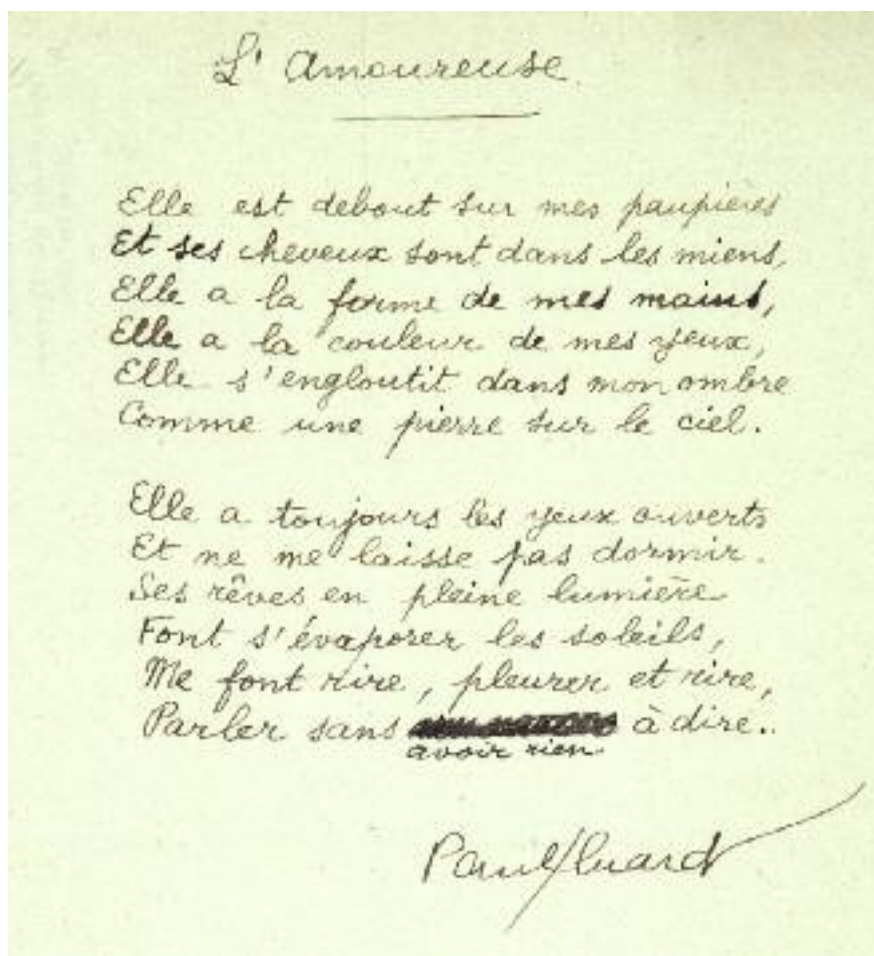 L'Amoureuse
Elle est debout sur mes paupières
Et ses cheveux sont dans les miens,
Elle a la forme de mes mains,
Elle a la couleur de mes yeux,
Elle s'engloutit dans mon ombre
Comme une pierre sur le ciel.
Elle a toujours les yeux ouverts
Et ne me laisse pas dormir.
Ses rêves en pleine lumière
Font s'évaporer les soleils,
Me font rire, pleurer et rire,
Parler sans à dire..
avoir rien
Paul Eluard